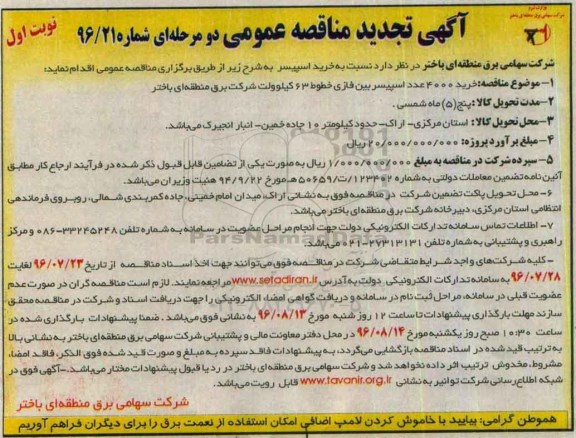 وزارت نیرو
شرکت سهامی برق منطقه‌ای باختر
نوبت اول
آگهی تجدید مناقصه عمومی دو مرحله‌ای شماره ۹۶/۲۱
شرکت سهامی برق منطقه‌ای باختر در نظر دارد نسبت به خرید اسپیسر به شرح زیر از طریق برگزاری مناقصه عمومی اقدام نماید:
۱- موضوع مناقصه: خرید ۴۰۰۰ عدد اسپیسر بین فازی خطوط ۶۳ کیلوولت شرکت برق منطقه‌ای باختر
۲- مدت تحویل کالا: پنج (۵) ماه شمسی.
۳- محل تحویل کالا: استان مرکزی- اراک- حدود کیلومتر ۱۰ جاده خمین- انبار انجیرک می‌باشد.
۴- مبلغ برآورد پروژه: ۲۰/۰۰۰/۰۰۰/۰۰۰ ریال
۵- سپرده شرکت در مناقصه به مبلغ ۱/۰۰۰/۰۰۰/۰۰۰ ریال به صورت یکی از تضامین قابل قبول ذکر شده در فرآیند ارجاع کار مطابق
آئین نامه تضمین معاملات دولتی به شماره ۱۲۳۴۰۲/ت۵۰۶۵۹هـ مورخ ۹۴/۹/۲۲ هئیت وزیران می‌باشد.
۶- محل تحویل پاکت تضمین شرکت در مناقصه فوق به نشانی اراک، میدان امام خمینی، جاده کمربندی شمالی، روبروی فرماندهی
انتظامی استان مرکزی، دبیرخانه شرکت برق منطقه‌ای باختر می‌باشد.
۷- اطلاعات تماس سامانه تدارکات الکترونیکی دولت جهت انجام مراحل عضویت در سامانه به شماره تلفن ۳۳۲۴۵۲۴۸-۰۸۶ و مرکز
راهبری و پشتیبانی به شماره تلفن ۲۷۳۱۳۱۳۱-۰۲۱ می‌باشد.
- کلیه شرکت‌های واجد شرایط متقاضی شرکت در مناقصه فوق می‌توانند جهت اخذ اسناد مناقصه از تاریخ ۹۶/۰۷/۲۳ لغایت
۹۶/۰۷/۲۸ به سامانه تدارکات الکترونیکی دولت به آدرس www.setadiran.ir مراجعه نمایند. لازم است مناقصه گران در صورت عدم
عضویت قبلی در سامانه، مراحل ثبت نام در سامانه و دریافت گواهی امضاء الکترونیکی را جهت دریافت اسناد و شرکت در مناقصه محقق
سازند مهلت بارگذاری پیشنهادات تا ساعت ۱۲ روز شنبه مورخ ۹۶/۰۸/۱۳ به نشانی فوق می‌باشد. ضمنا پیشنهادات بارگذاری شده در
ساعت ۱۰:۳۰ صبح روز یکشنبه مورخ ۹۶/۰۸/۱۴ در محل دفتر معاونت مالی و پشتیبانی شرکت سهامی برق منطقه‌ای باختر به نشانی بالا
به ترتیب قید شده در اسناد مناقصه بازگشایی می‌گردد، به پیشنهادات فاقد سپرده به مبلغ و صورت قید شده فوق الذکر، فاقد امضاء،
مشروط، مخدوش ترتیب اثر داده نخواهد شد و شرکت سهامی برق منطقه‌ای باختر در رد یا قبول پیشنهادات مختار می‌باشد.- آگهی فوق در
شبکه اطلاع رسانی شرکت توانیر به نشانی www.tavanir.org.ir قابل رویت می‌باشد.
شرکت سهامی برق منطقه‌ای باختر
هموطن گرامی: بیایید با خاموش کردن لامپ اضافی امکان استفاده از نعمت برق را برای دیگران فراهم آوریم